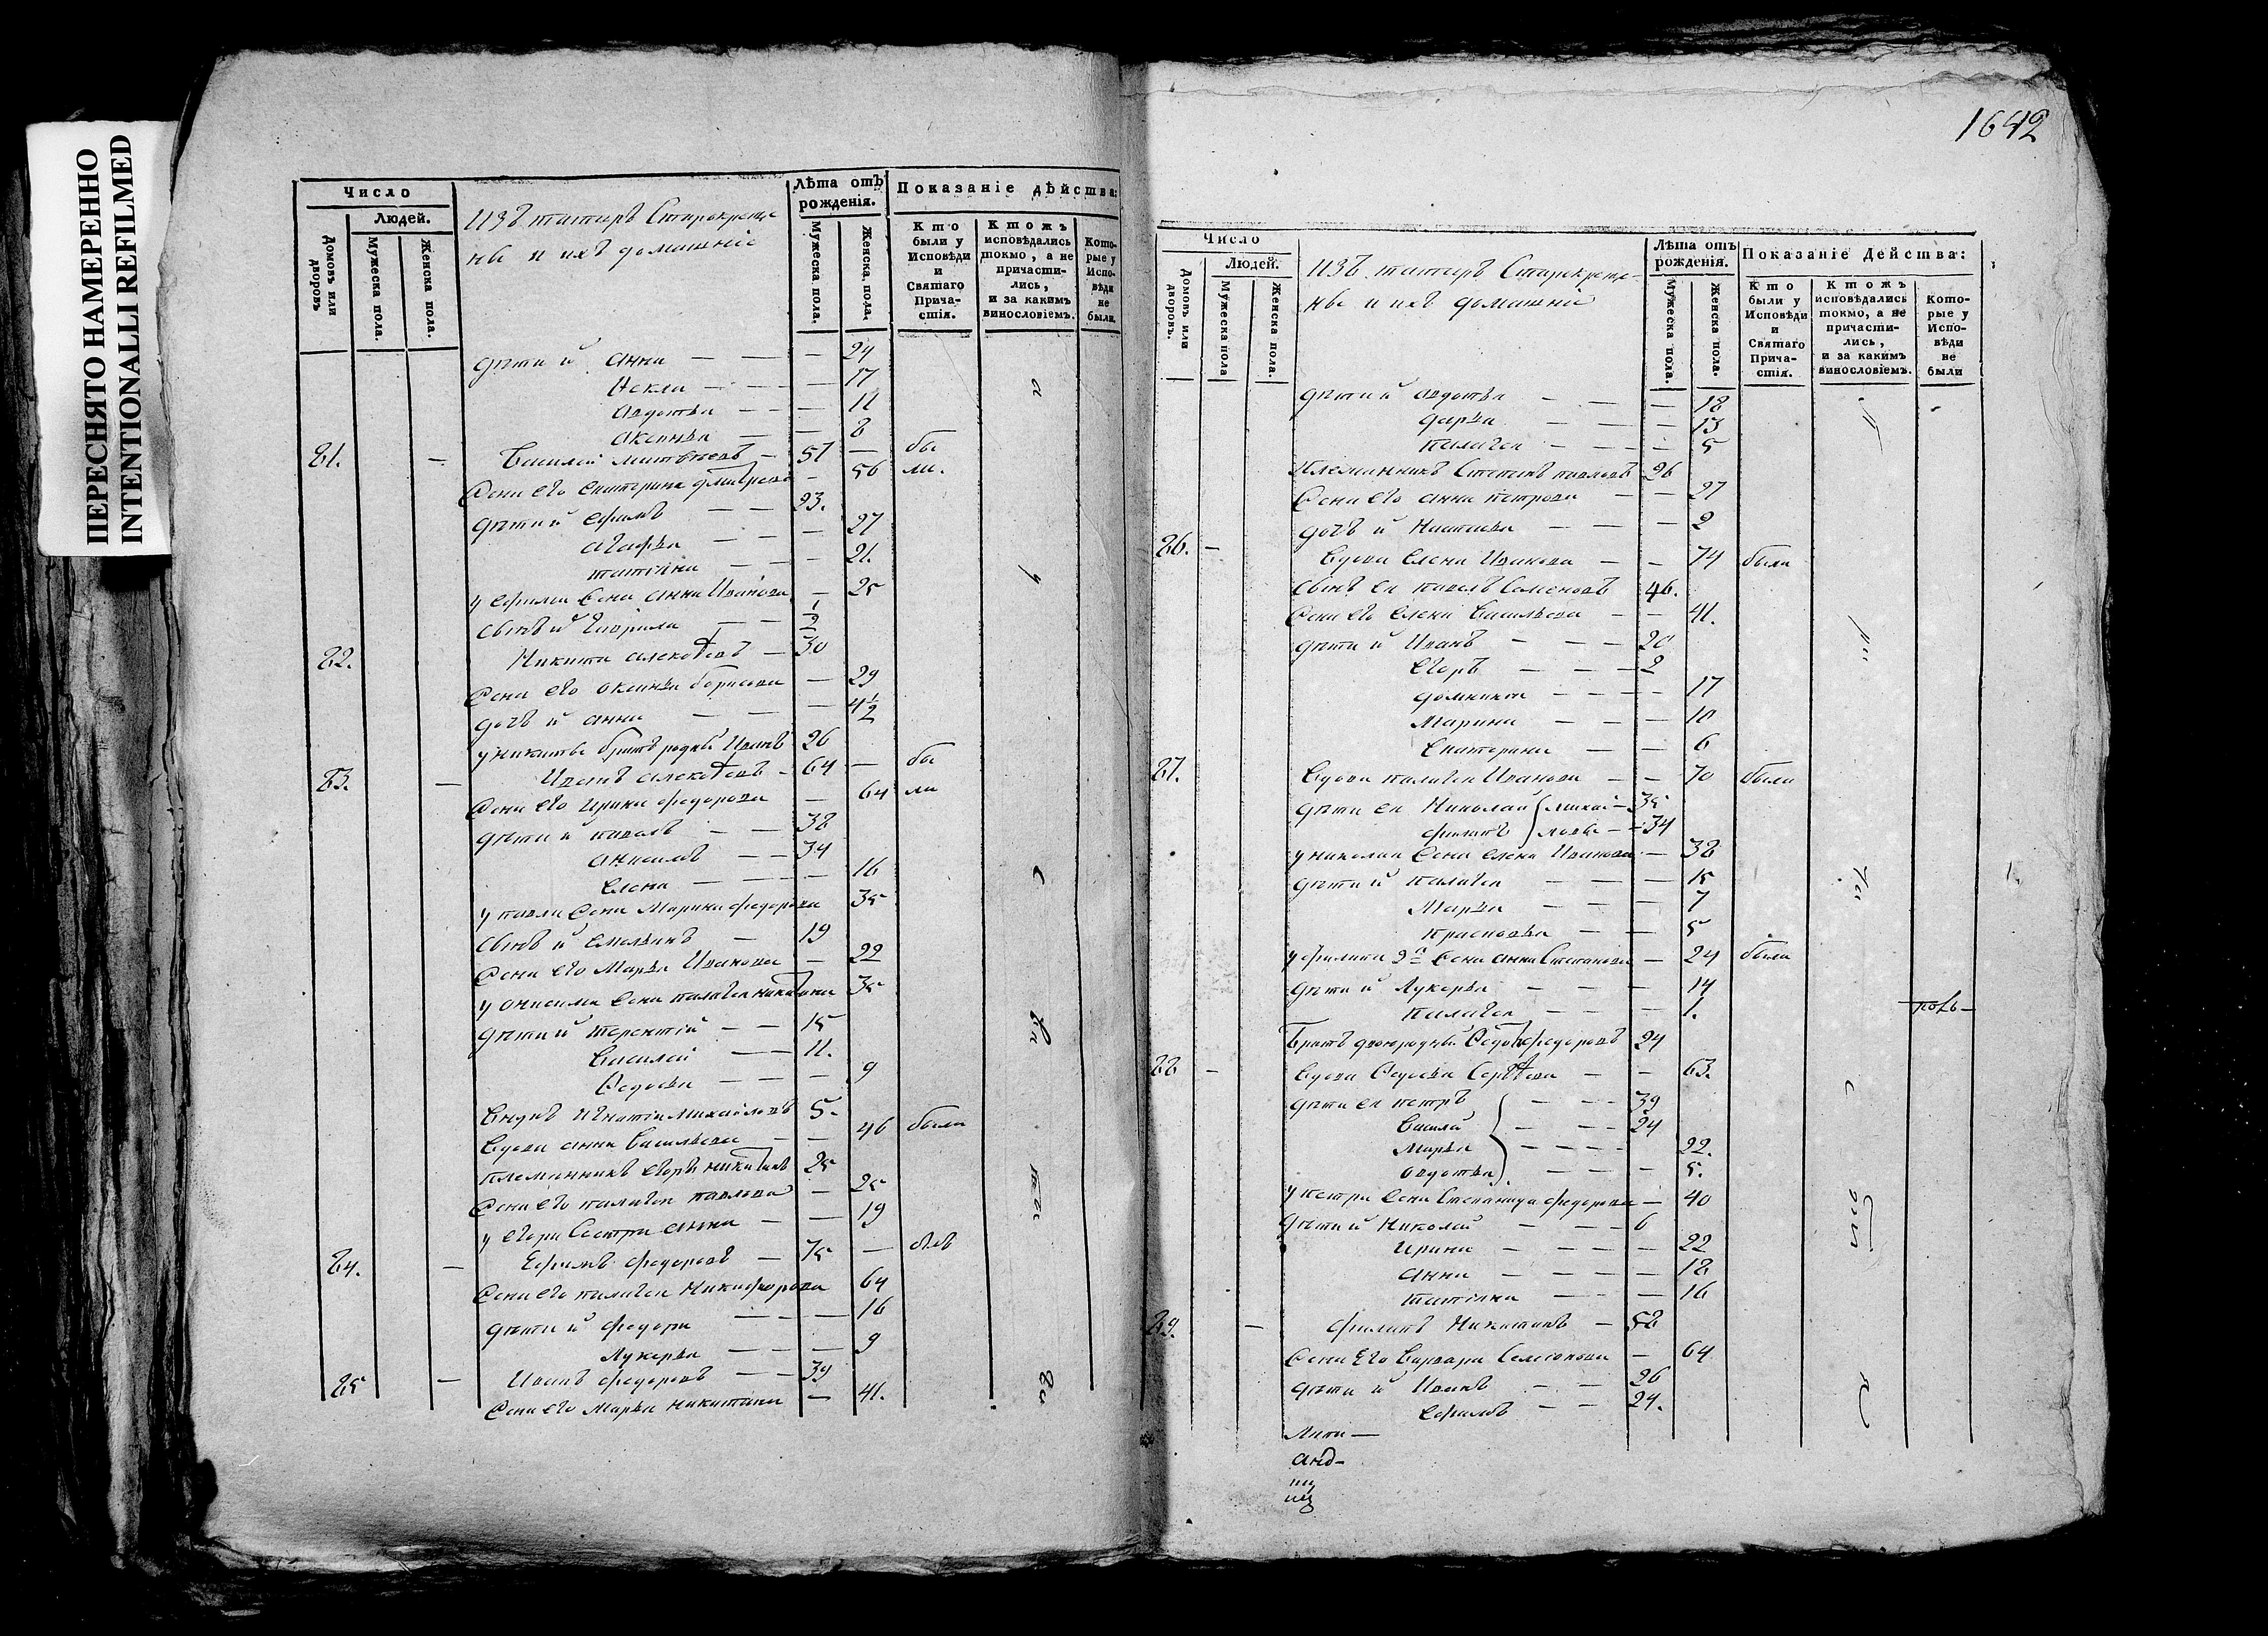 ПЕРЕСНЯТО НАМЕРЕННО
INTENTIONALLI REFILMED
Число
Людей.
Домовъ или дворовъ
Мужеска пола.
Женска пола.
Изъ татаръ Старокреще
ны и ихъ домашніе
Лѣта отъ рожденія.
Мужеска пола.
Женска пола.
Показаніе дѣйства:
Кто были у Исповѣди и Святаго Прича-стія.
Ктожъ исповѣдались токмо, а не причасти-лись, и за какимъ винословіемъ.
Кото-рые у Испо-вѣди не были.
дѣти и͠ анна — — — 24
Фекла — — — 17
авдотья — — — 11
аксинья — — 8
81. — Василей матвѣевъ — 57 — бы
Жена его екатерина дмитрева — 56 ли.
дѣти и͠ ефимъ — — 23.
агафья — — — 27
татіяна — — — 21.
у ефима жена анна Иванова — 25
сынъ и͠ гаврила — — 1/2
82. Никита алексѣевъ — 30
Жена его оксинья борисова — 29
дочь и͠ анна — — 4 1/2
у никиты братъ родны Иванъ 26
83. — Иванъ алексѣевъ — 64 — бы
Жена его Ирина федорова — 64 ли
дѣти и͠ павелъ — — 38
анисимъ — — 34
Елена — — — 16
у павла жена Марина федорова 35
сынъ и͠ емельянъ — 19
Жена его Марья Иванова — 22
у онисима жена палагея никитина 35
дѣти и͠ терентій — — 15
Василей — — 11.
Федосья — — — 9
Внукъ игнатіи михайловъ 5.
Вдова анна васильева — — 46 была
племянникъ егоръ никитинъ 25
Жена его палагея павлова — 25
у егора сестра анна — — 19
84. — Ефимъ федоровъ — 75 — былъ
Жена его палагея Никифорова 64
дѣти и͠ федора — — — 16
лукерья — — — 9
85 — Иванъ федоровъ — — 39
Жена его Марья никитина — 41.
1642
Число
Людей.
Домовъ или дворовъ.
Мужеска пола
Женска пола.
Изъ татаръ Старокреще-
ны и ихъ домашніе
Лѣта отъ рожденія.
Мужеска пола.
Женска пола.
Показаніе Действа:
Кто были у Исповѣди и Святаго Прича-стія.
Ктожъ исповѣдались токмо, а не причасти-лись, и за какимъ винословіемъ.
Кото-рые у Испо-вѣди не были
дѣти и͠ авдотья — — — 18
дарья — — — 13
палагея — — — 5
племянникъ Степанъ павловъ 26
Жена его анна петрова — — 27
дочь и͠ Настасья — — — 2
86. — Вдова елена Иванова — — 74 была
сынъ ея павелъ Семеновъ 46.
Жена его елена васильева — — 41.
дѣти и͠ Иванъ — — — 20
егоръ — — — 2
домникія — — — — 17
Марина — — — 10
екатерина — — 6
87. Вдова палагея Иванова — — 70 была
дѣти ея Николай { михай — 35
филатъ { ловы — 34
у николая жена елена Иванова — 38
дѣти и͠ палагея — — — 15
Марья — — — 7
прасковья — — 5
у филата 2я жена анна Степанова — 24 была
дѣти и͠ лукерья — — — 14
палагея — — — 1.
Братъ двоюродны Федоръ федоровъ 24
88 — Вдова Федосья Сергѣева — — 63.
дѣти ея петръ — — — 39
Василй — — — 24
Марья — — — — 22.
авдотья — — — — 5.
у петра жена Степанида федорова — 40
дѣти и͠ Николай — — — 6
Ирина — — — — 22
анна — — — — 18
татіяна — — — 16
89. — филипъ Никитинъ — 58
Жена Его Варвара Семіонова — 64
дѣти и͠ Иванъ — — 26
ефимъ — — 24.